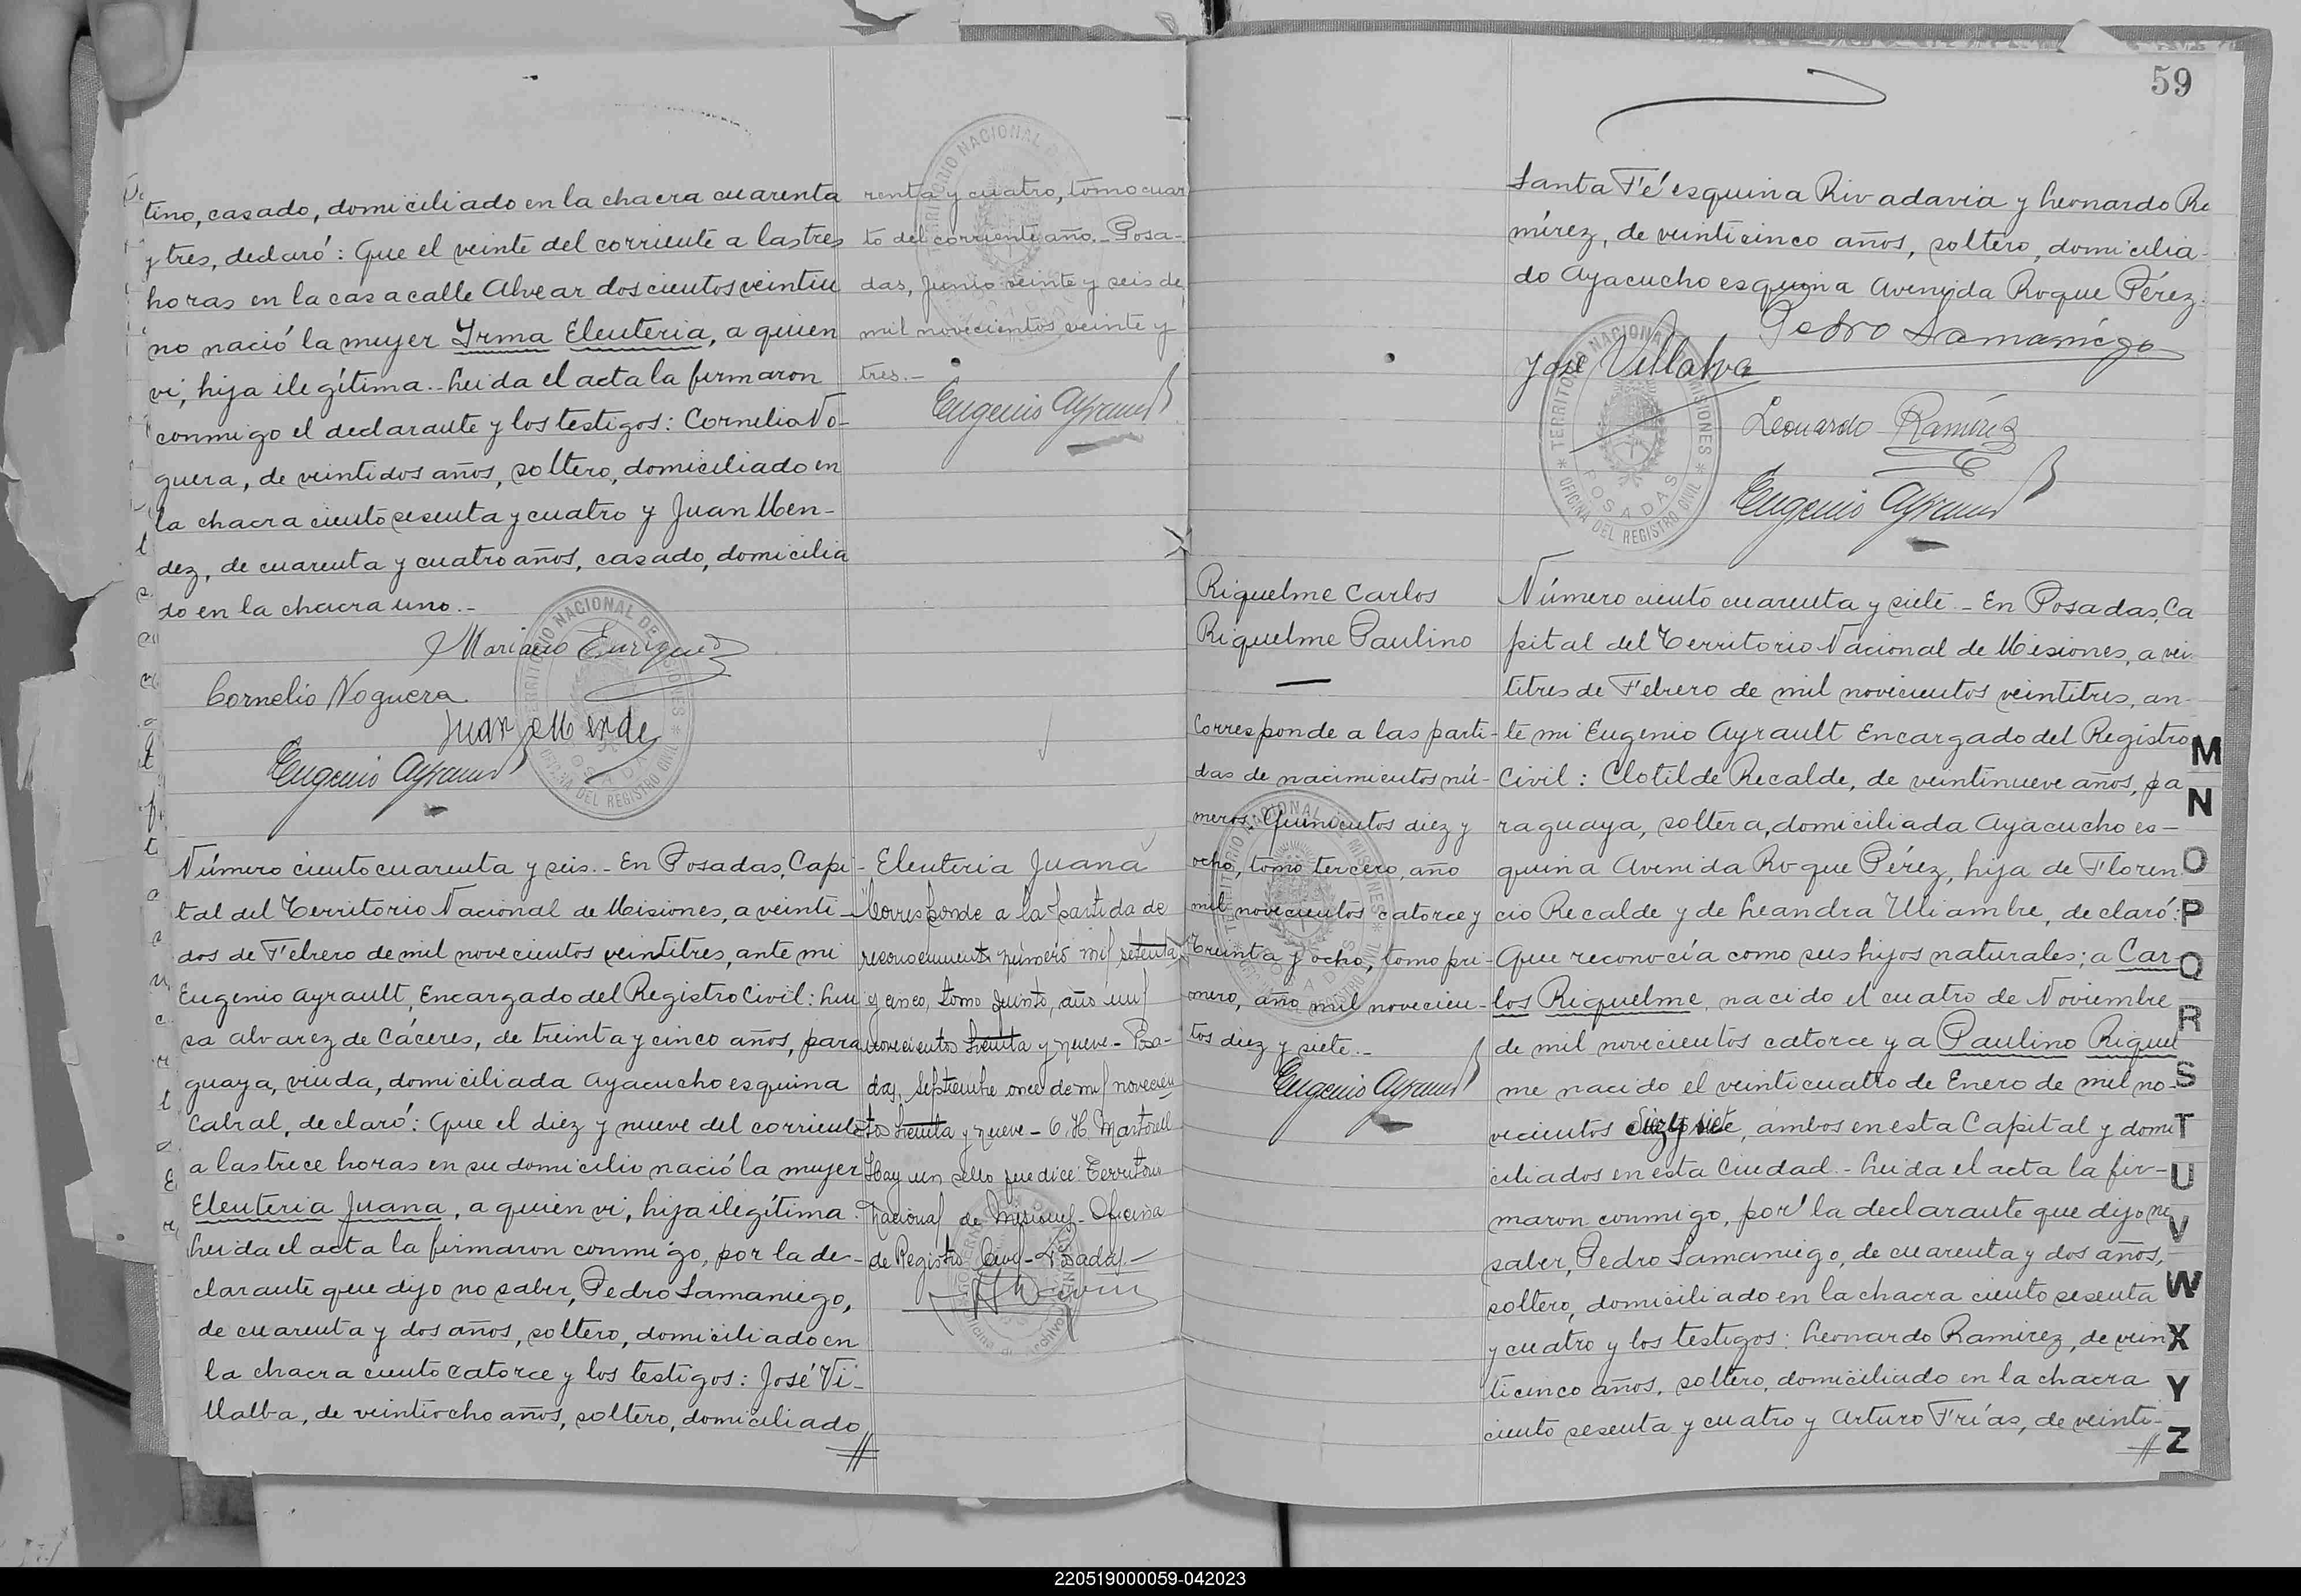 tino, casado, domiciliado en la chacra cuarenta
y tres, declaró: Que el veinte del corriente a las tres
horas en la casa calle Alvear doscientos veintiu
no nació la mujer Irma Eleuteria, a quien
vi, hija ilegítima.- Leida el acta la firmaron
conmigo el declarante y los testigos: Cornelio No-
guera, de veintidos años, soltero, domiciliado en
la chacra ciento sesenta y cuatro y Juan Men-
dez, de cuarenta y cuatro años, casado, domicilia
do en la chacra uno.-
Mariano Enriquez
Cornelio Noguera
Juan Mendez
Eugenio Ayrault
TERRITORIO NACIONAL DE MISIONES
POSADAS
OFICINA DEL REGISTRO CIVIL
renta y cuatro, tomo cuar
to del corriente año.- Posa-
das, Junio veinte y seis de
mil novecientos veinte y
tres.-
Eugenio Ayrault
Número ciento cuarenta y seis.- En Posadas, Capi-
tal del Territorio Nacional de Misiones, a veinti-
dos de Febrero de mil novecientos veintitres, ante mi
Eugenio Ayrault, Encargado del Registro Civil: Lui
sa Alvarez de Cáceres, de treinta y cinco años, para
guaya, viuda, domiciliada Ayacucho esquina
Cabral, declaró: Que el diez y nueve del corriente
a las trece horas en su domicilio nació la mujer
Eleuteria Juana, a quien vi, hija ilegítima.
Leida el acta la firmaron conmigo, por la de-
clarante que dijo no saber, Pedro Samaniego,
de cuarenta y dos años, soltero, domiciliado en
la chacra ciento catorce y los testigos: José Vi-
llalba, de veintiocho años, soltero, domiciliado
Eleuteria Juana
Corresponde a la partida de
reconocimiento número mil setenta
y cinco, tomo quinto, año mil
novecientos treinta y nueve - Posa-
das, Septiembre once de mil novecien
tos treinta y nueve - O. H. Martorell
Hay un sello que dice: Territorio
Nacional de Misiones - Oficina
de Registro Civil - Posadas.-
59
Santa Fé esquina Rivadavia y Leonardo Ra
mírez, de veinticinco años, soltero, domicilia-
do Ayacucho esquina Avenida Roque Pérez.
Pedro Samaniego
José Villalva
Leonardo Ramírez
Eugenio Ayrault
TERRITORIO NACIONAL DE MISIONES
POSADAS
OFICINA DEL REGISTRO CIVIL
Riquelme Carlos
Riquelme Paulino
Corresponde a las parti-
das de nacimientos nú-
meros: Quinientos diez y
ocho, tomo tercero, año
mil novecientos catorce y
treinta y ocho, tomo pri-
mero, año mil novecien-
tos diez y siete.-
Eugenio Ayrault
Número ciento cuarenta y siete.- En Posadas, Ca
pital del Territorio Nacional de Misiones, a vein
titres de Febrero de mil novecientos veintitres, an-
te mi Eugenio Ayrault Encargado del Registro
Civil: Clotilde Recalde, de veintinueve años, pa
raguaya, soltera, domiciliada Ayacucho es-
quina Avenida Roque Pérez, hija de Floren
cio Recalde y de Leandra Uliambre, declaró:
Que reconocía como sus hijos naturales; a Car-
los Riquelme, nacido el cuatro de Noviembre
de mil novecientos catorce y a Paulino Riquel
me nacido el veinticuatro de Enero de mil no-
vecientos diez y siete, ambos en esta Capital y domi
ciliados en esta Ciudad.- Leida el acta la fir-
maron conmigo, por la declarante que dijo no
saber, Pedro Samaniego, de cuarenta y dos años,
soltero, domiciliado en la chacra ciento sesenta
y cuatro y los testigos: Leonardo Ramirez, de vein
ticinco años, soltero, domiciliado en la chacra
ciento sesenta y cuatro y Arturo Frías, de veinti-
M
N
O
P
Q
R
S
T
U
V
W
X
Y
Z
220519000059-042023